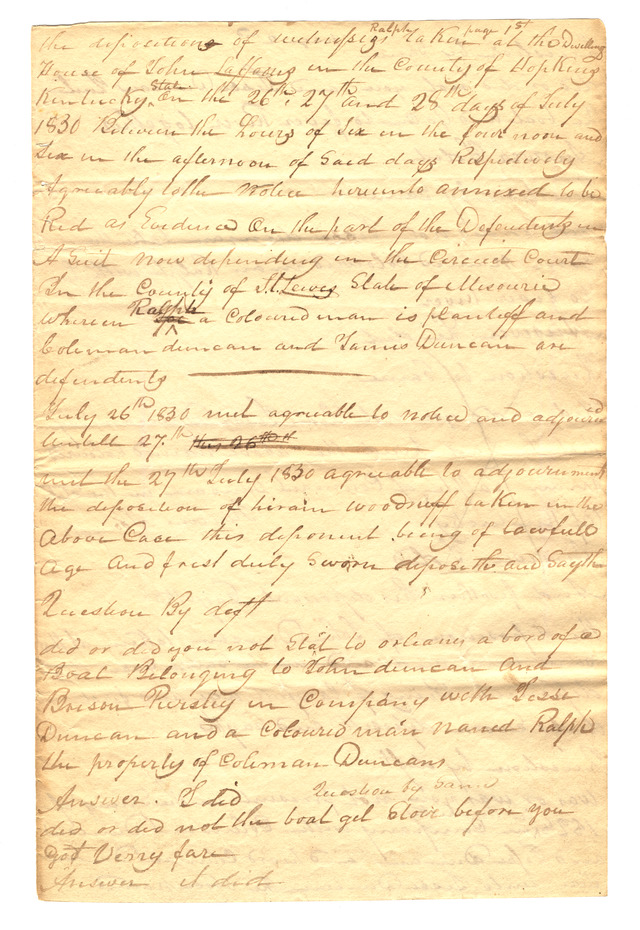 Ralph page 1st
the depositions of witnesses taken at the Dwelling
House of John in the County of Hopkins
Kentucky State On the 26th, 27th and 28th days of July
1830 Between the hours of Six in the four noon and
Six in the afternoon of Said days Respectively
Agreeably to the Notice hereunto annexed to be
Red as Evidence On the part of the Defendents in
A Suit now depending in the Circuit Court
In the County of St. Lewis State of Missourie
Wherein Ralph a Coloured man is plantiff and
Coleman duncan and Jamis Duncan are
defendents
July 26th 1830 met agreable to notice and adjourned
untill 27.th
met the 27th July 1830 agreable to adjournment
the deposition of hiram woodruff taken in the
Above Case this deponent being of lawfull
Age And frest duly Sworn deposeth and Sayth
Question By deft
did or did you not Stat to orleanes a bord of a
Boat Belonging to John duncan And
Pursley in Company with Jesse
Duncan and a Coloured man named Ralph
the property of Coleman Duncans
Answer. I did Question by Same
did or did not the boat get Stove before you
got Verry fare
Answer it did